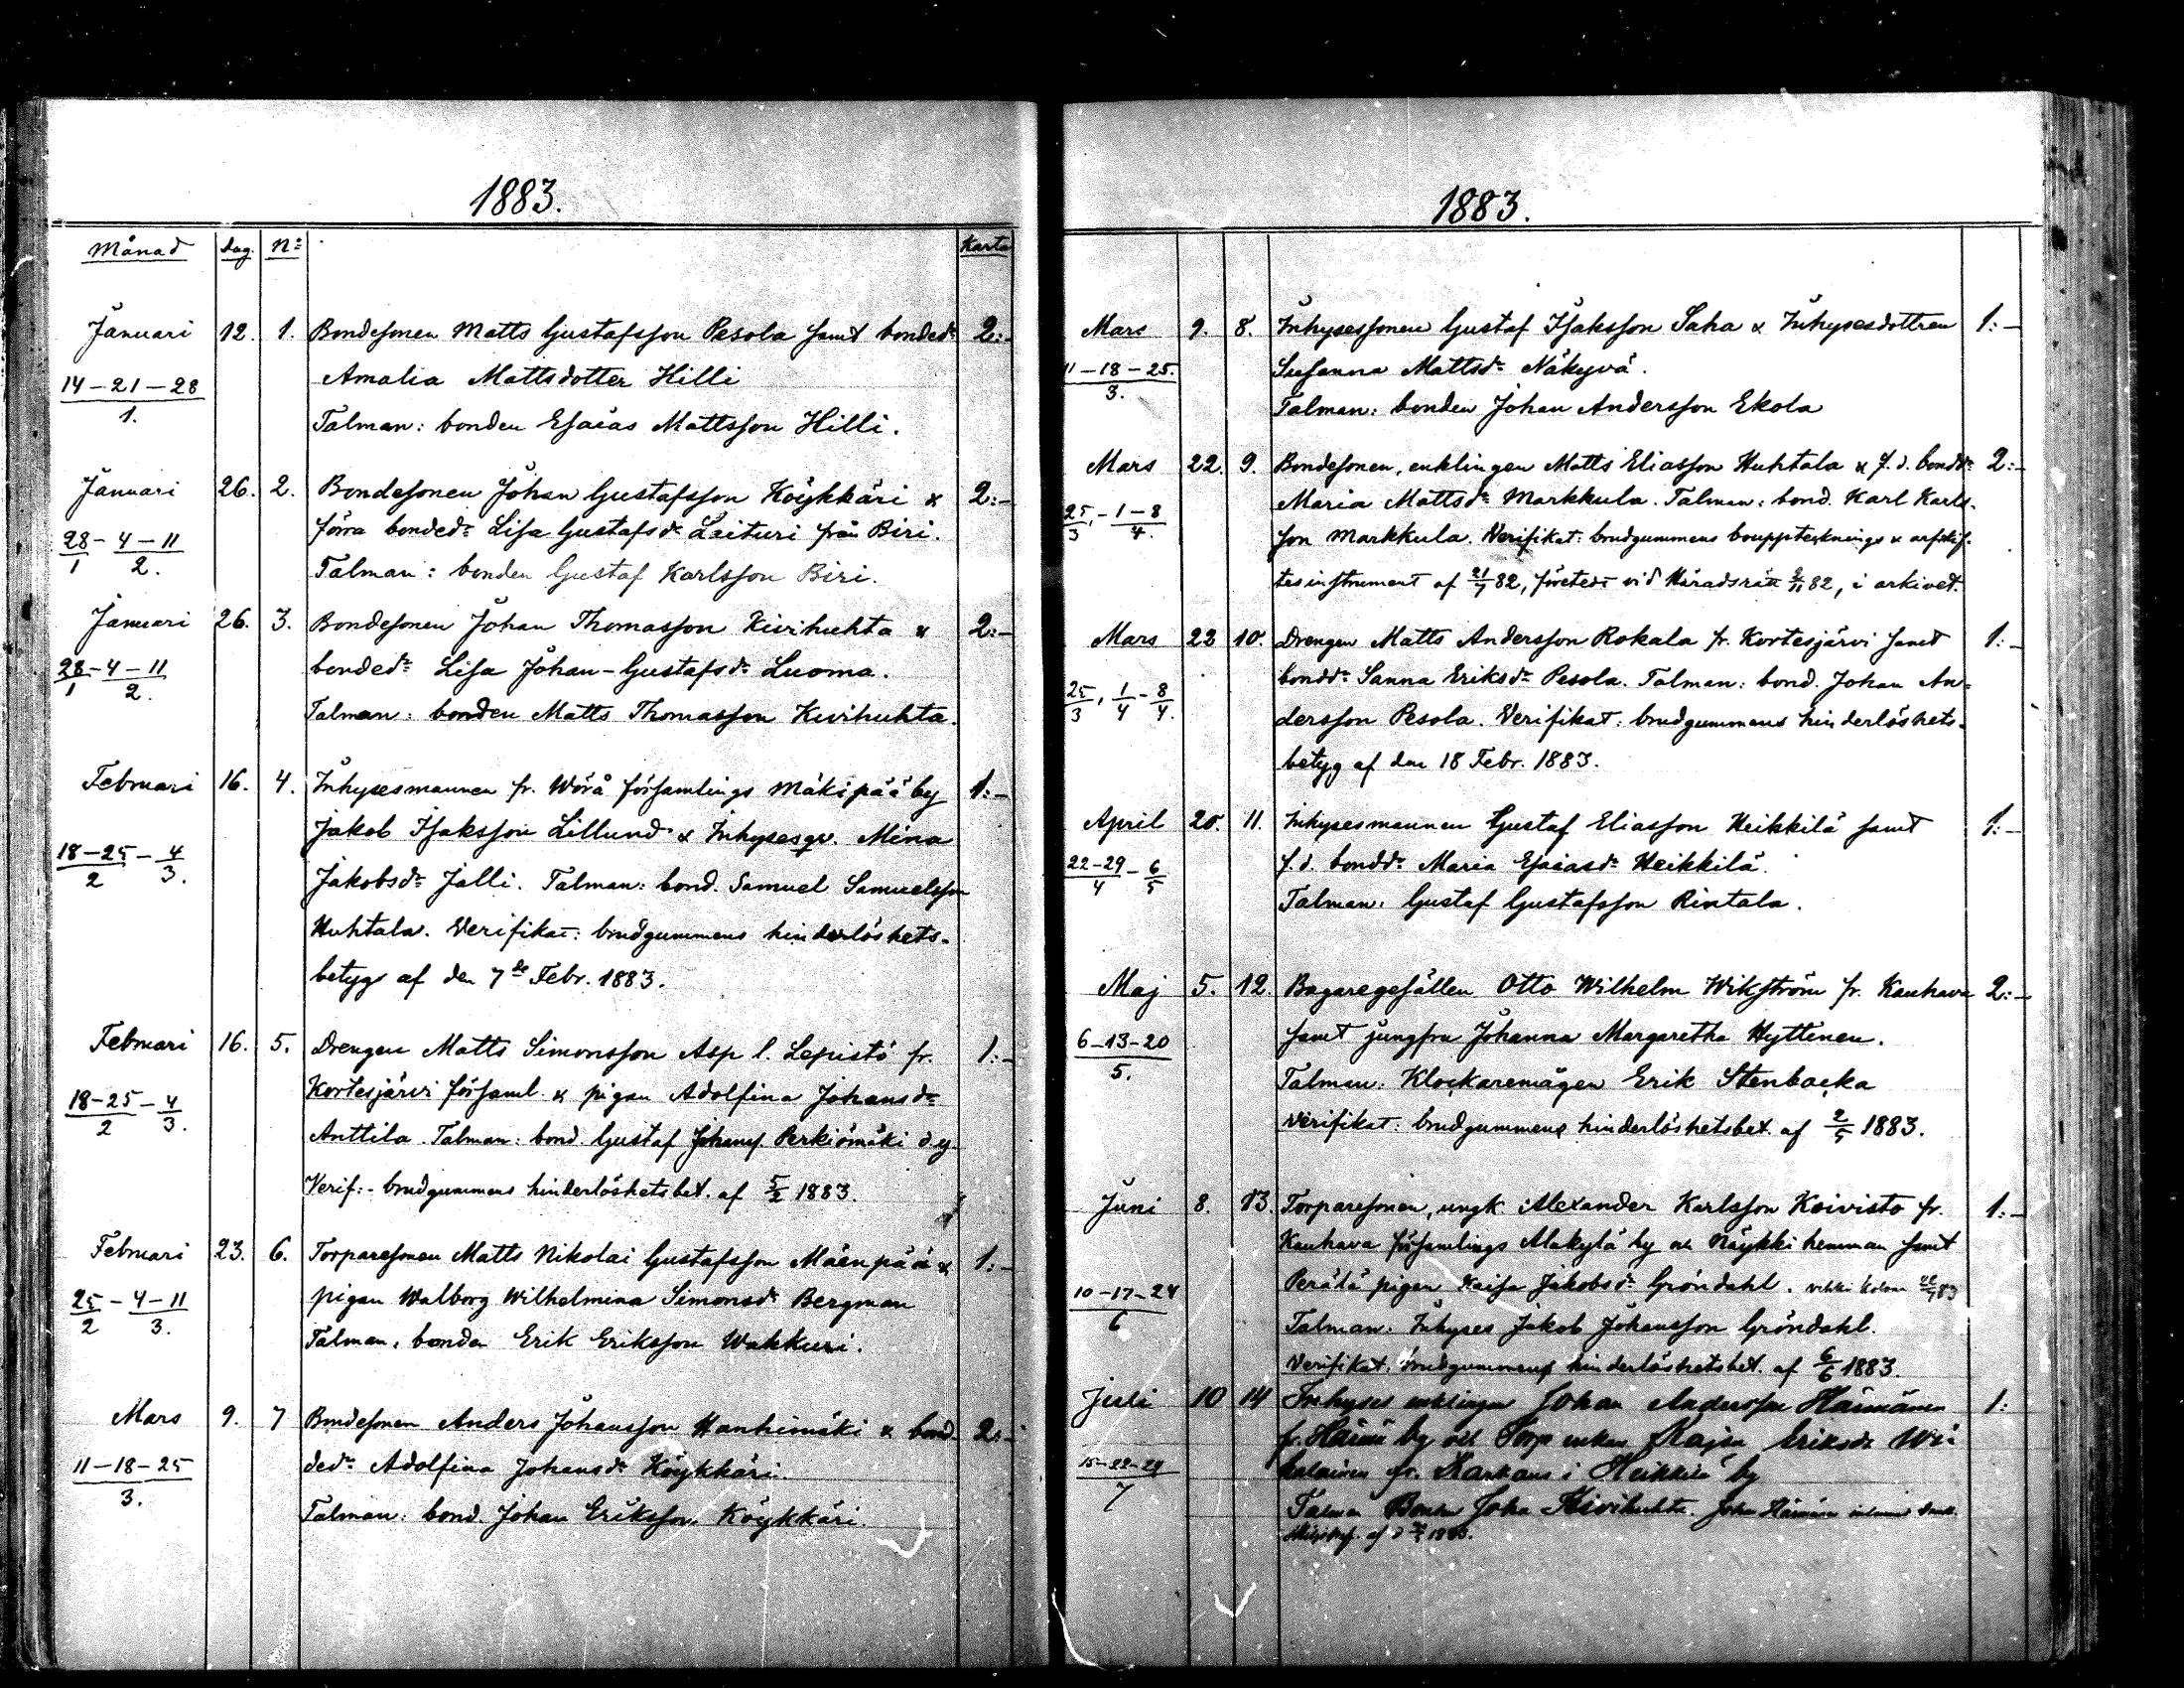 1883.
Månad Dag. No Karta
Januari 12. 1. Bondesonen Matts Gustafsson Pesola samt bondedr 2:-
14-21-28 Amalia Mattsdotter Hilli
1. Talman: bonden Esaias Mattsson Hilli.
Januari 26. 2. Bondesonen Johan Gustafsson Köykkäri & 2:-
28/1 - 4-11/2. förra bondedr Lisa Gustafsdr Laituri från Biri.
Talman: bonden Gustaf Karlsson Biri.
Januari 26. 3. Bondesonen Johan Thomasson Kivihuhta & 2:-
28/1 - 4-11/2. bondedr Lisa Johan-Gustafsdr Luoma.
Talman: bonden Matts Thomasson Kivihuhta.
Februari 16. 4. Inhysesmannen fr. Wörå församlings Mäkipää by 1:-
Jakob Isaksson Lillund & Inhysesqv. Mina
18-25/2 - 4/3. Jakobsdr Jalli. Talman: bond. Samuel Samuelsson
Huhtala. Verifikat: brudgummens hinderlöshets-
betyg af den 7de Febr. 1883.
Februari 16. 5. Drengen Matts Simonsson Asp l. Lepistö fr. 1:-
18-25/2 - 4/3. Kortesjärvi församl. & pigan Adolfina Johansdr
Anttila. Talman: bond. Gustaf Johans. Perkiömäki d.y.
Verif:- brudgummens hinderlöshetsbet. af 5/2 1883.
Februari 23. 6. Torparesonen Matts Nikolai Gustafsson Mäenpää & 1:-
25/2 - 4-11/3. pigan Walborg Wilhelmina Simonsdr Bergman
Talman: bonden Erik Eriksson Wakkuri.
Mars 9. 7 Bondesonen Anders Johansson Hanhimäki & bond- 2:-
11-18-25/3. dedr Adolfina Johansdr Köykkäri.
Talman: bond. Johan Eriksson Köykkäri.
1883.
Mars 9. 8. Inhysessonen Gustaf Isaksson Saha & Inhysesdottren 1:-
11-18-25./3. Susanna Mattsdr Näkyvä.
Talman: bonden Johan Andersson Ekola
Mars 22. 9. Bondesonen, enklingen Matts Eliasson Huhtala & f.d. bonddr 2:-
25/3, - 1-8/4. Maria Mattsdr Markkula. Talman: bond. Karl Karls-
son Markkula. Verifikat: brudgummens boupptecknings & arfskif-
tesinstrument af 21/7 82, företedt vid Häradsrätt 82, i arkivet.
Mars 23 10. Drengen Matts Andersson Rokala fr. Kortesjärvi samt 1:-
25/3, 1/4 - 8/4. bonddr Sanna Eriksdr Pesola. Talman: bond. Johan An-
dersson Pesola. Verifikat: brudgummens hinderlöshets-
betyg af den 18 Febr. 1883.
April 20. 11. Inhysesmannen Gustaf Eliasson Heikkilä samt 1:-
22-29/4 - 6/5 f.d. bonddr Maria Esaiasdr Heikkilä.
Talman: Gustaf Gustafsson Rintala.
Maj 5. 12. Bagaregesällen Otto Wilhelm Wikström fr. Kauhava 2:-
6-13-20/5. samt jungfru Johanna Margaretha Hyttinen.
Talman: Klockaremågen Erik Stenbacka
Verifikat: brudgummens hinderlöshetsbet. af 2/5 1883.
Juni 8. 13. Torparesonen, ungk. Alexander Karlsson Koivisto fr. 1:-
Kauhava församlings Alakylä by och Näykki hemman samt
10-17-24/6 Perälä pigan Kaisa Jakobsdr Gröndahl. 83
Talman: Inhyses Jakob Johansson Gröndahl.
Verifikat: brudgummens hinderlöshetsbet. af 6/6 1883.
Juli 10 14 Inhyses enklingen Johan Andersson Härmänen 1:
fr. Härmä by och Torp enkan Kajsa Eriksdr Wi-
15-22-29/7 fr. i Heikkilä by
Talman Bonden Johan Kivihuhta. Johan Härmänen
af